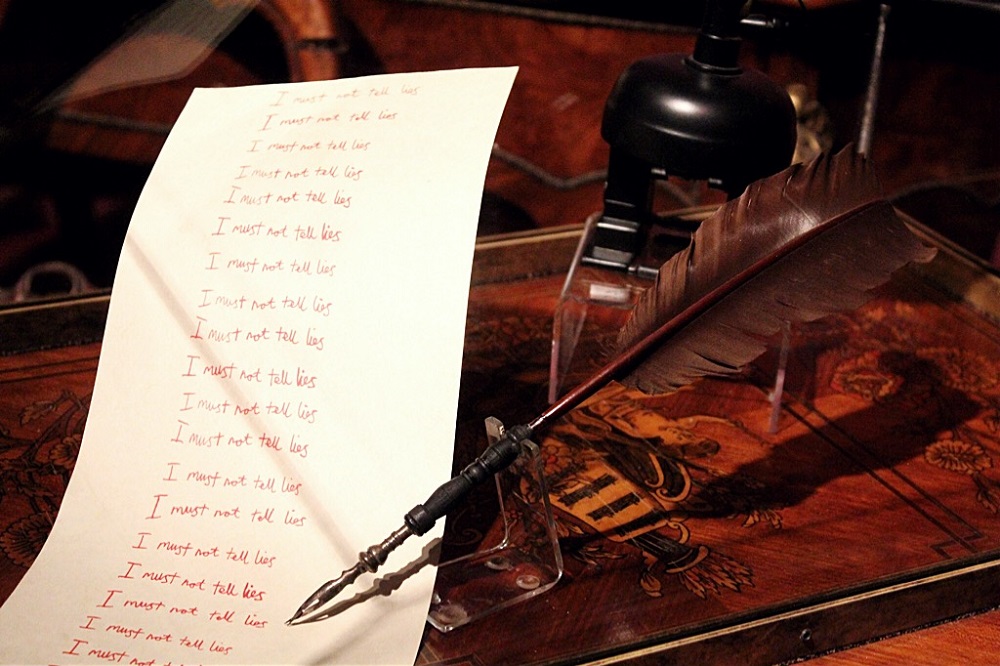 I must not tell lies
I must not tell lies
I must not tell lies
I must not tell lies
I must not tell lies
I must not tell lies
I must not tell lies
I must not tell lies
I must not tell lies
I must not tell lies
I must not tell lies
I must not tell lies
I must not tell lies
I must not tell lies
I must not tell lies
I must not tell lies
I must not tell lies
I must not tell lies
I must not tell